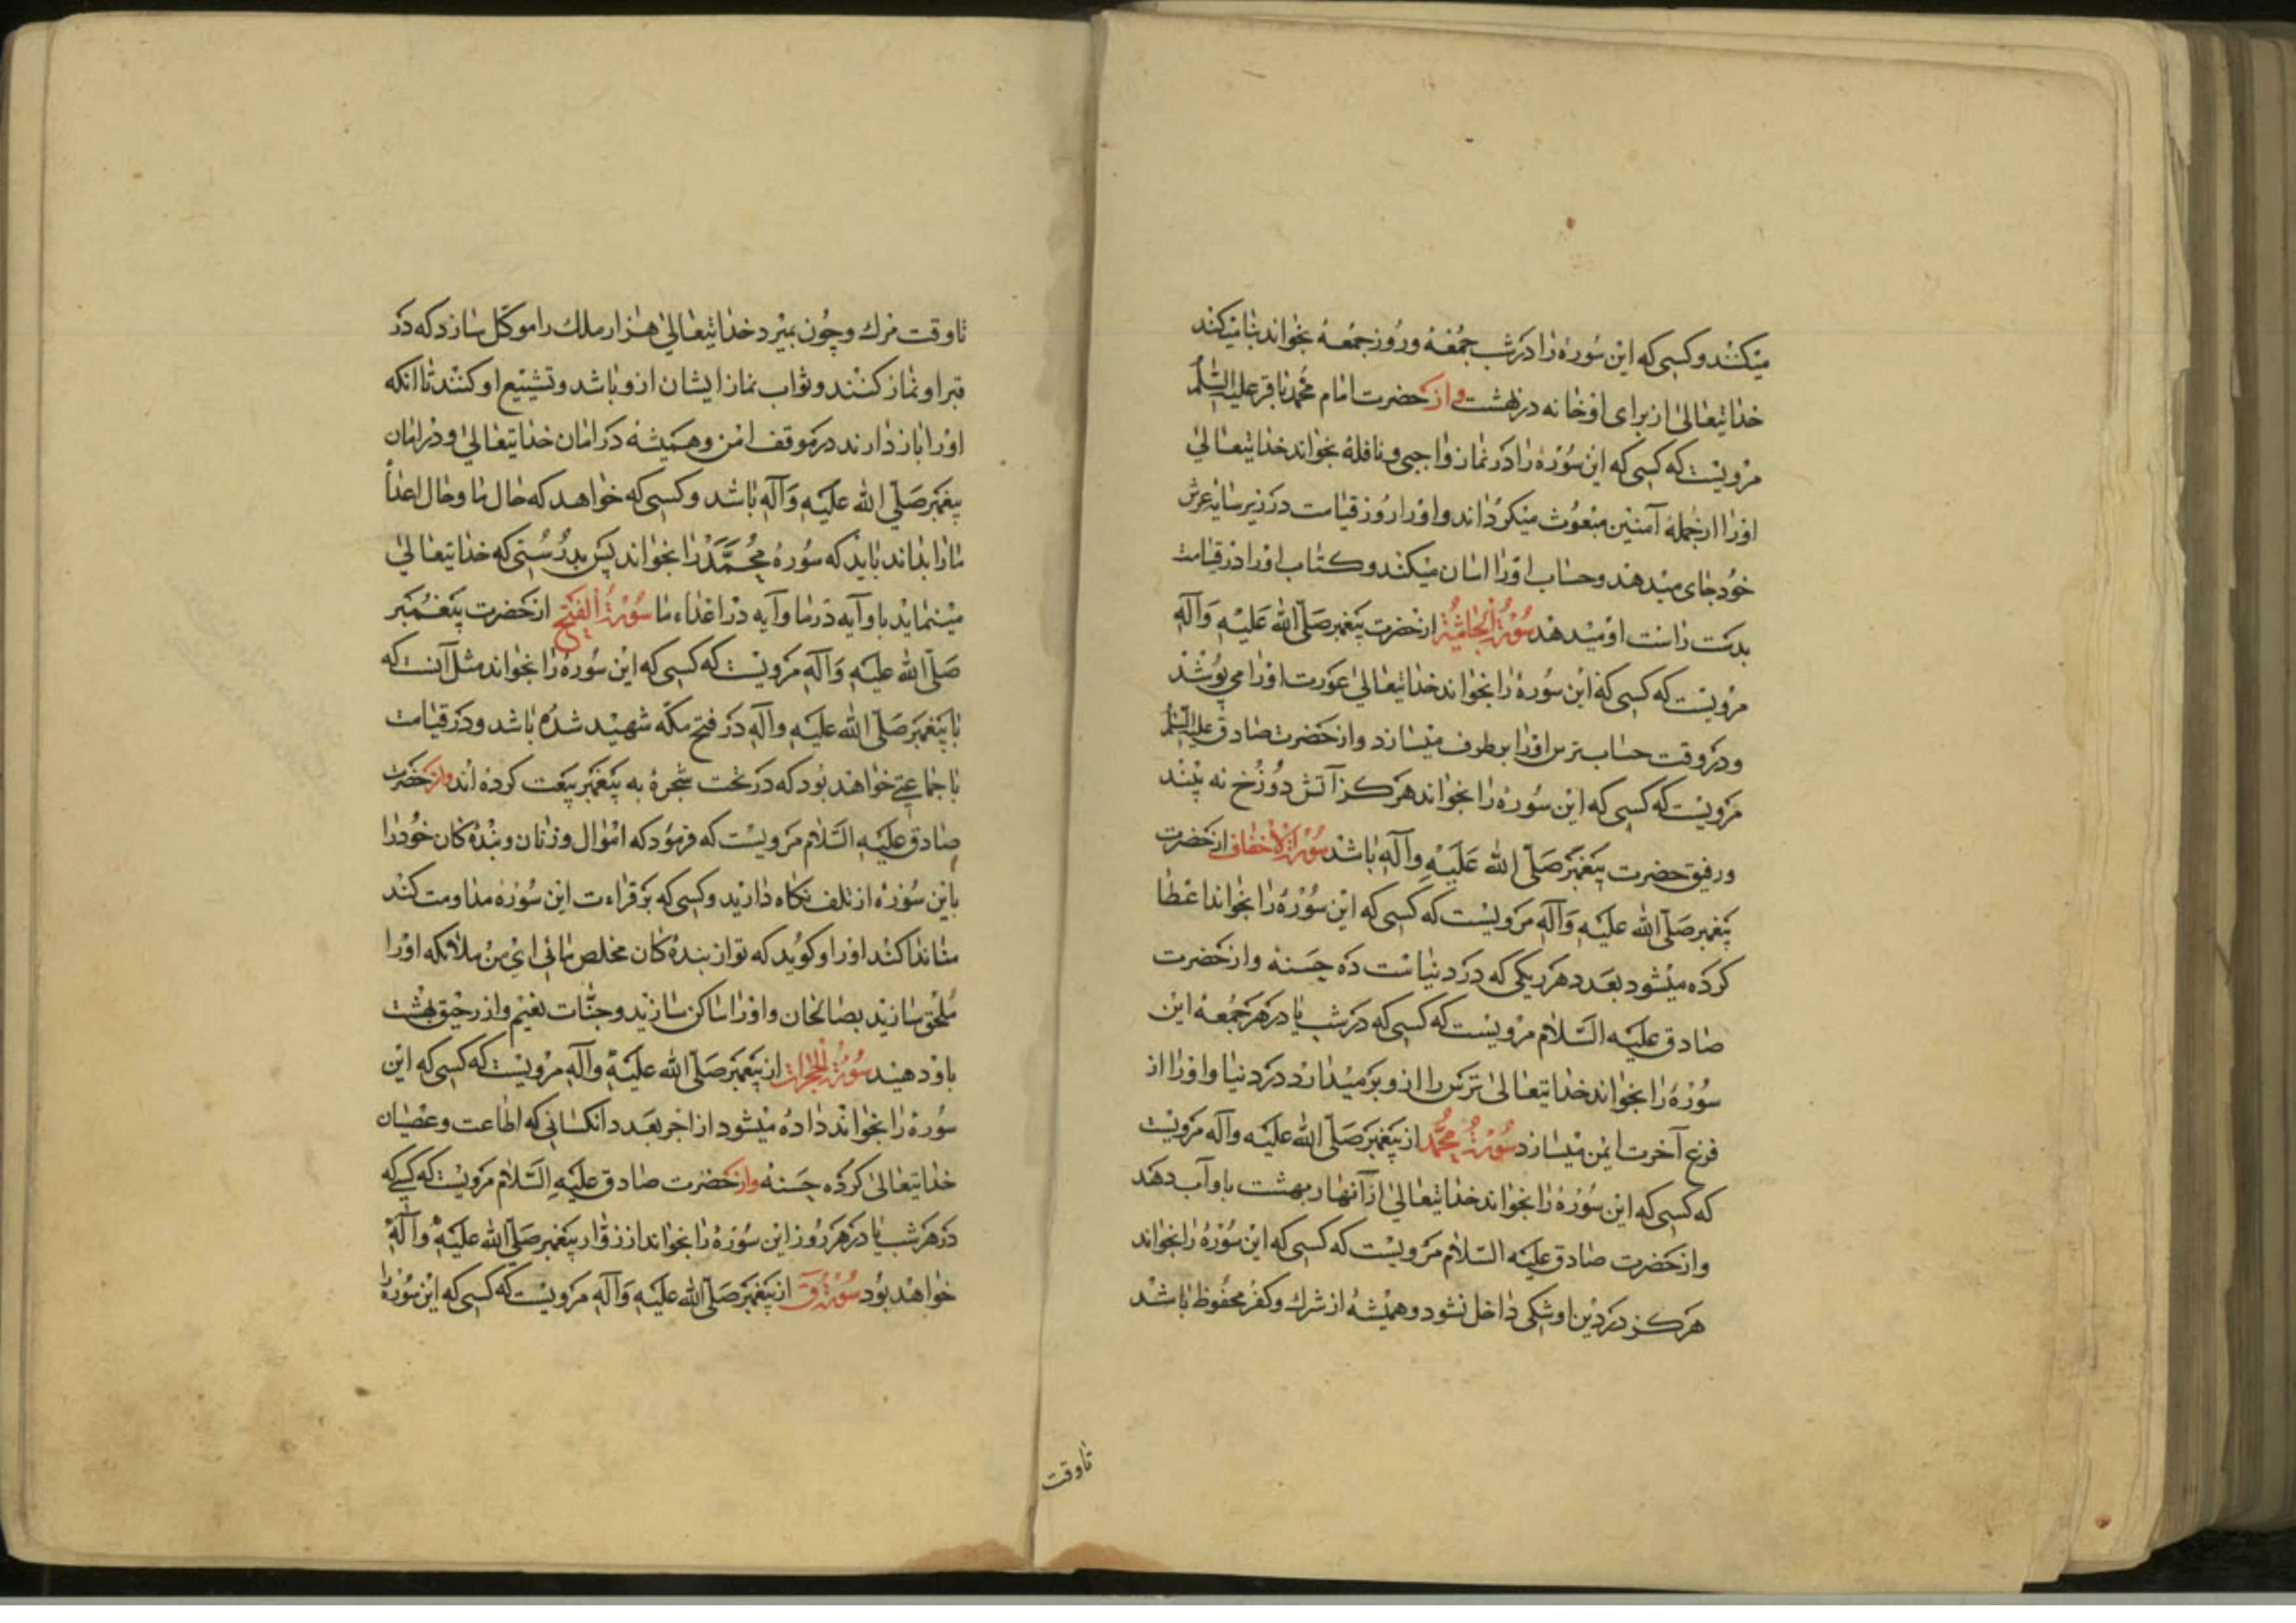 میکنند و کسی که این سوره را در شب جمعه و روز جمعه بخواند بنا میکند
خدایتعالی از برای او خانه در بهشت و از حضرت امام محمد باقر علیه السلم
مرویست که کسی که این سوره را در نماز واجبی و نافله بخواند خدایتعالی
او را از جمله آمنین مبعوث میکرداند و او را روز قیامت در زیر سایه عرش
خود جای میدهد و حساب او را اسان میکند و کتاب او را در قیامت
بدست راست او میدهد سورة الجاثیة از حضرت پیغمبر صلی الله علیه وآله
مرویست که کسی که این سوره را بخواند خدایتعالی عورت او را می پوشد
و در وقت حساب ترس او را بر طرف میسازد و از حضرت صادق علیه السلم
مرویست که کسی که این سوره را بخواند هرکز آتش دوزخ نه بیند
و رفیق حضرت پیغمبر صلی الله علیه وآله باشد سورة الاحقاف از حضرت
پیغمبر صلی الله علیه وآله مرویست که کسی که این سوره را بخواند اعطا
کرده میشود بعدد هر ریکی که در دنیاست ده حسنه و از حضرت
صادق علیه السلام مرویست که کسی که در شب یا در هر جمعه این
سوره را بخواند خدایتعالی ترس را از و بر میدارد در دنیا و او را از
فزع آخرت ایمن میسازد سورة محمد از پیغمبر صلی الله علیه وآله مرویست
که کسی که این سوره را بخواند خدایتعالی از آنهار بهشت باو آب دهد
و از حضرت صادق علیه السلام مرویست که کسی که این سوره را بخواند
هرکز در دین او شکی داخل نشود و همیشه از شرك و کفر محفوظ باشد
تا وقت
تا وقت مرك و چون بمیرد خدایتعالی هزار ملك را موکل سازد که در
قبر او نماز کنند و ثواب نماز ایشان از و باشد و تشییع او کنند تا انکه
او را باز دارند در موقف امن و همیشه در امان خدایتعالی و در امان
پیغمبر صلی الله علیه وآله باشد و کسی که خواهد که حال ما و حال اعداء
ما را بداند باید که سوره محمد را بخواند پس بدرستی که خدایتعالی
مینماید باو آیه در ما و آیه در اعداء ما سورة الفتح از حضرت پیغمبر
صلی الله علیه وآله مرویست که کسی که این سوره را بخواند مثل آنست که
با پیغمبر صلی الله علیه وآله در فتح مکه شهید شده باشد و در قیامت
با جماعتی خواهد بود که در تحت شجره به پیغمبر بیعت کرده اند و از حضرت
صادق علیه السلام مرویست که فرمود که اموال و زنان و بنده کان خود را
باین سوره از تلف نکاه دارید و کسی که بر قراءت این سوره مداومت کند
ندا کند او را و کوید که تو از بنده کان مخلص مائی ای من ملائکه او را
ملحق سازید بصالحان و او را ساکن سازید و جنات نعیم و از رحیق بهشت
باو دهید سورة الحجرات از پیغمبر صلی الله علیه وآله مرویست که کسی که این
سوره را بخواند داده میشود از اجر بعدد انکسانی که اطاعت و عصیان
خدایتعالی کرده حسنه و از حضرت صادق علیه السلام مرویست که کسی که
در هر شب یا در هر روز این سوره را بخواند از زوار پیغمبر صلی الله علیه وآله
خواهد بود سورة ق از پیغمبر صلی الله علیه وآله مرویست که کسی که این سوره را